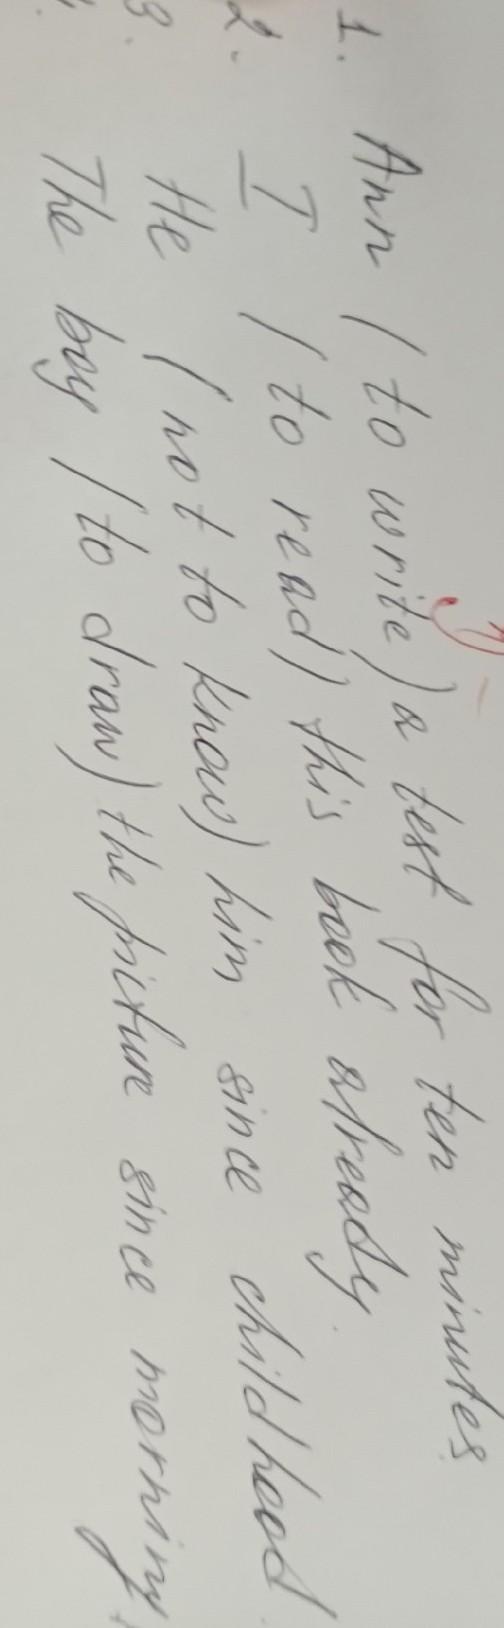 1. Ann (to write) a test for ten minutes
2. I (to read) this book already.
3. He (not to know) him since childhood.
The boy (to draw) the picture since morning